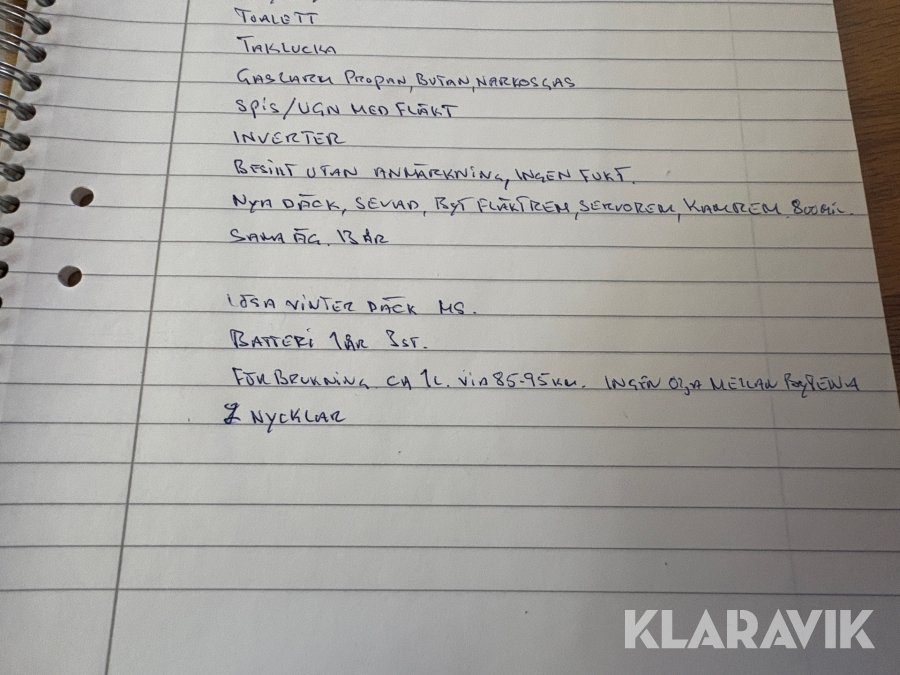 TOALETT
TAKLUCKA
GASLARM PROPAN, BUTAN, NARKOSGAS
SPIS/UGN MED FLÄKT
INVERTER
BESIKT UTAN ANMÄRKNING, INGEN FUKT.
NYA DÄCK, SEVAD, BYT FLÄKTREM, SERVOREM, KAMREM 800MIL.
SAMA ÄG. 13 ÅR
LÖSA VINTER DÄCK MS.
BATTERI 1ÅR 3ST.
FÖRBRUKNING CA 1L. VID 85-95KM. INGEN OLJA MELLAN BYTENA
2 NYCKLAR
KLARAVIK